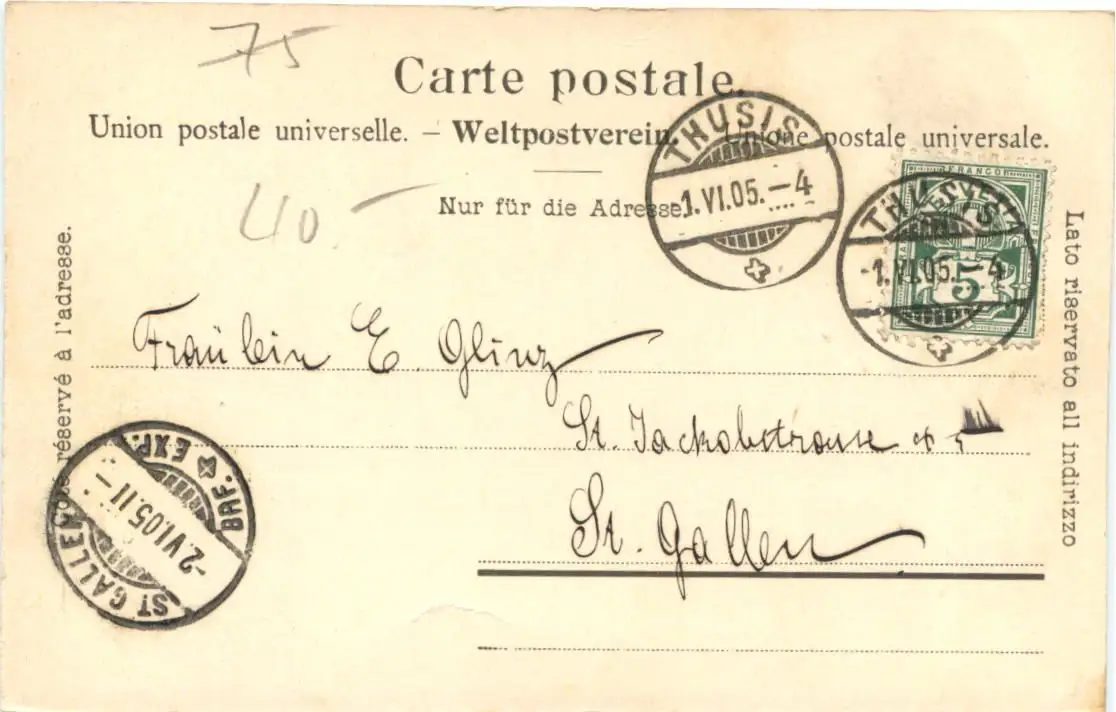 75
Carte postale.
Union postale universelle. – Weltpostverein. Unione postale universale.
Nur für die Adresse.
40 –
THUSIS
-1.VI.05.-4
THUSIS
-1.VI.05.-4
FRANCO
HELVETIA
5
Côté réservé à l'adresse.
Lato riservato all indirizzo
Fräulein E. Glinz
St. Jackobstrasse
St. Gallen
ST GALLEN
-2.VI.05.11-
BRF. EXP.